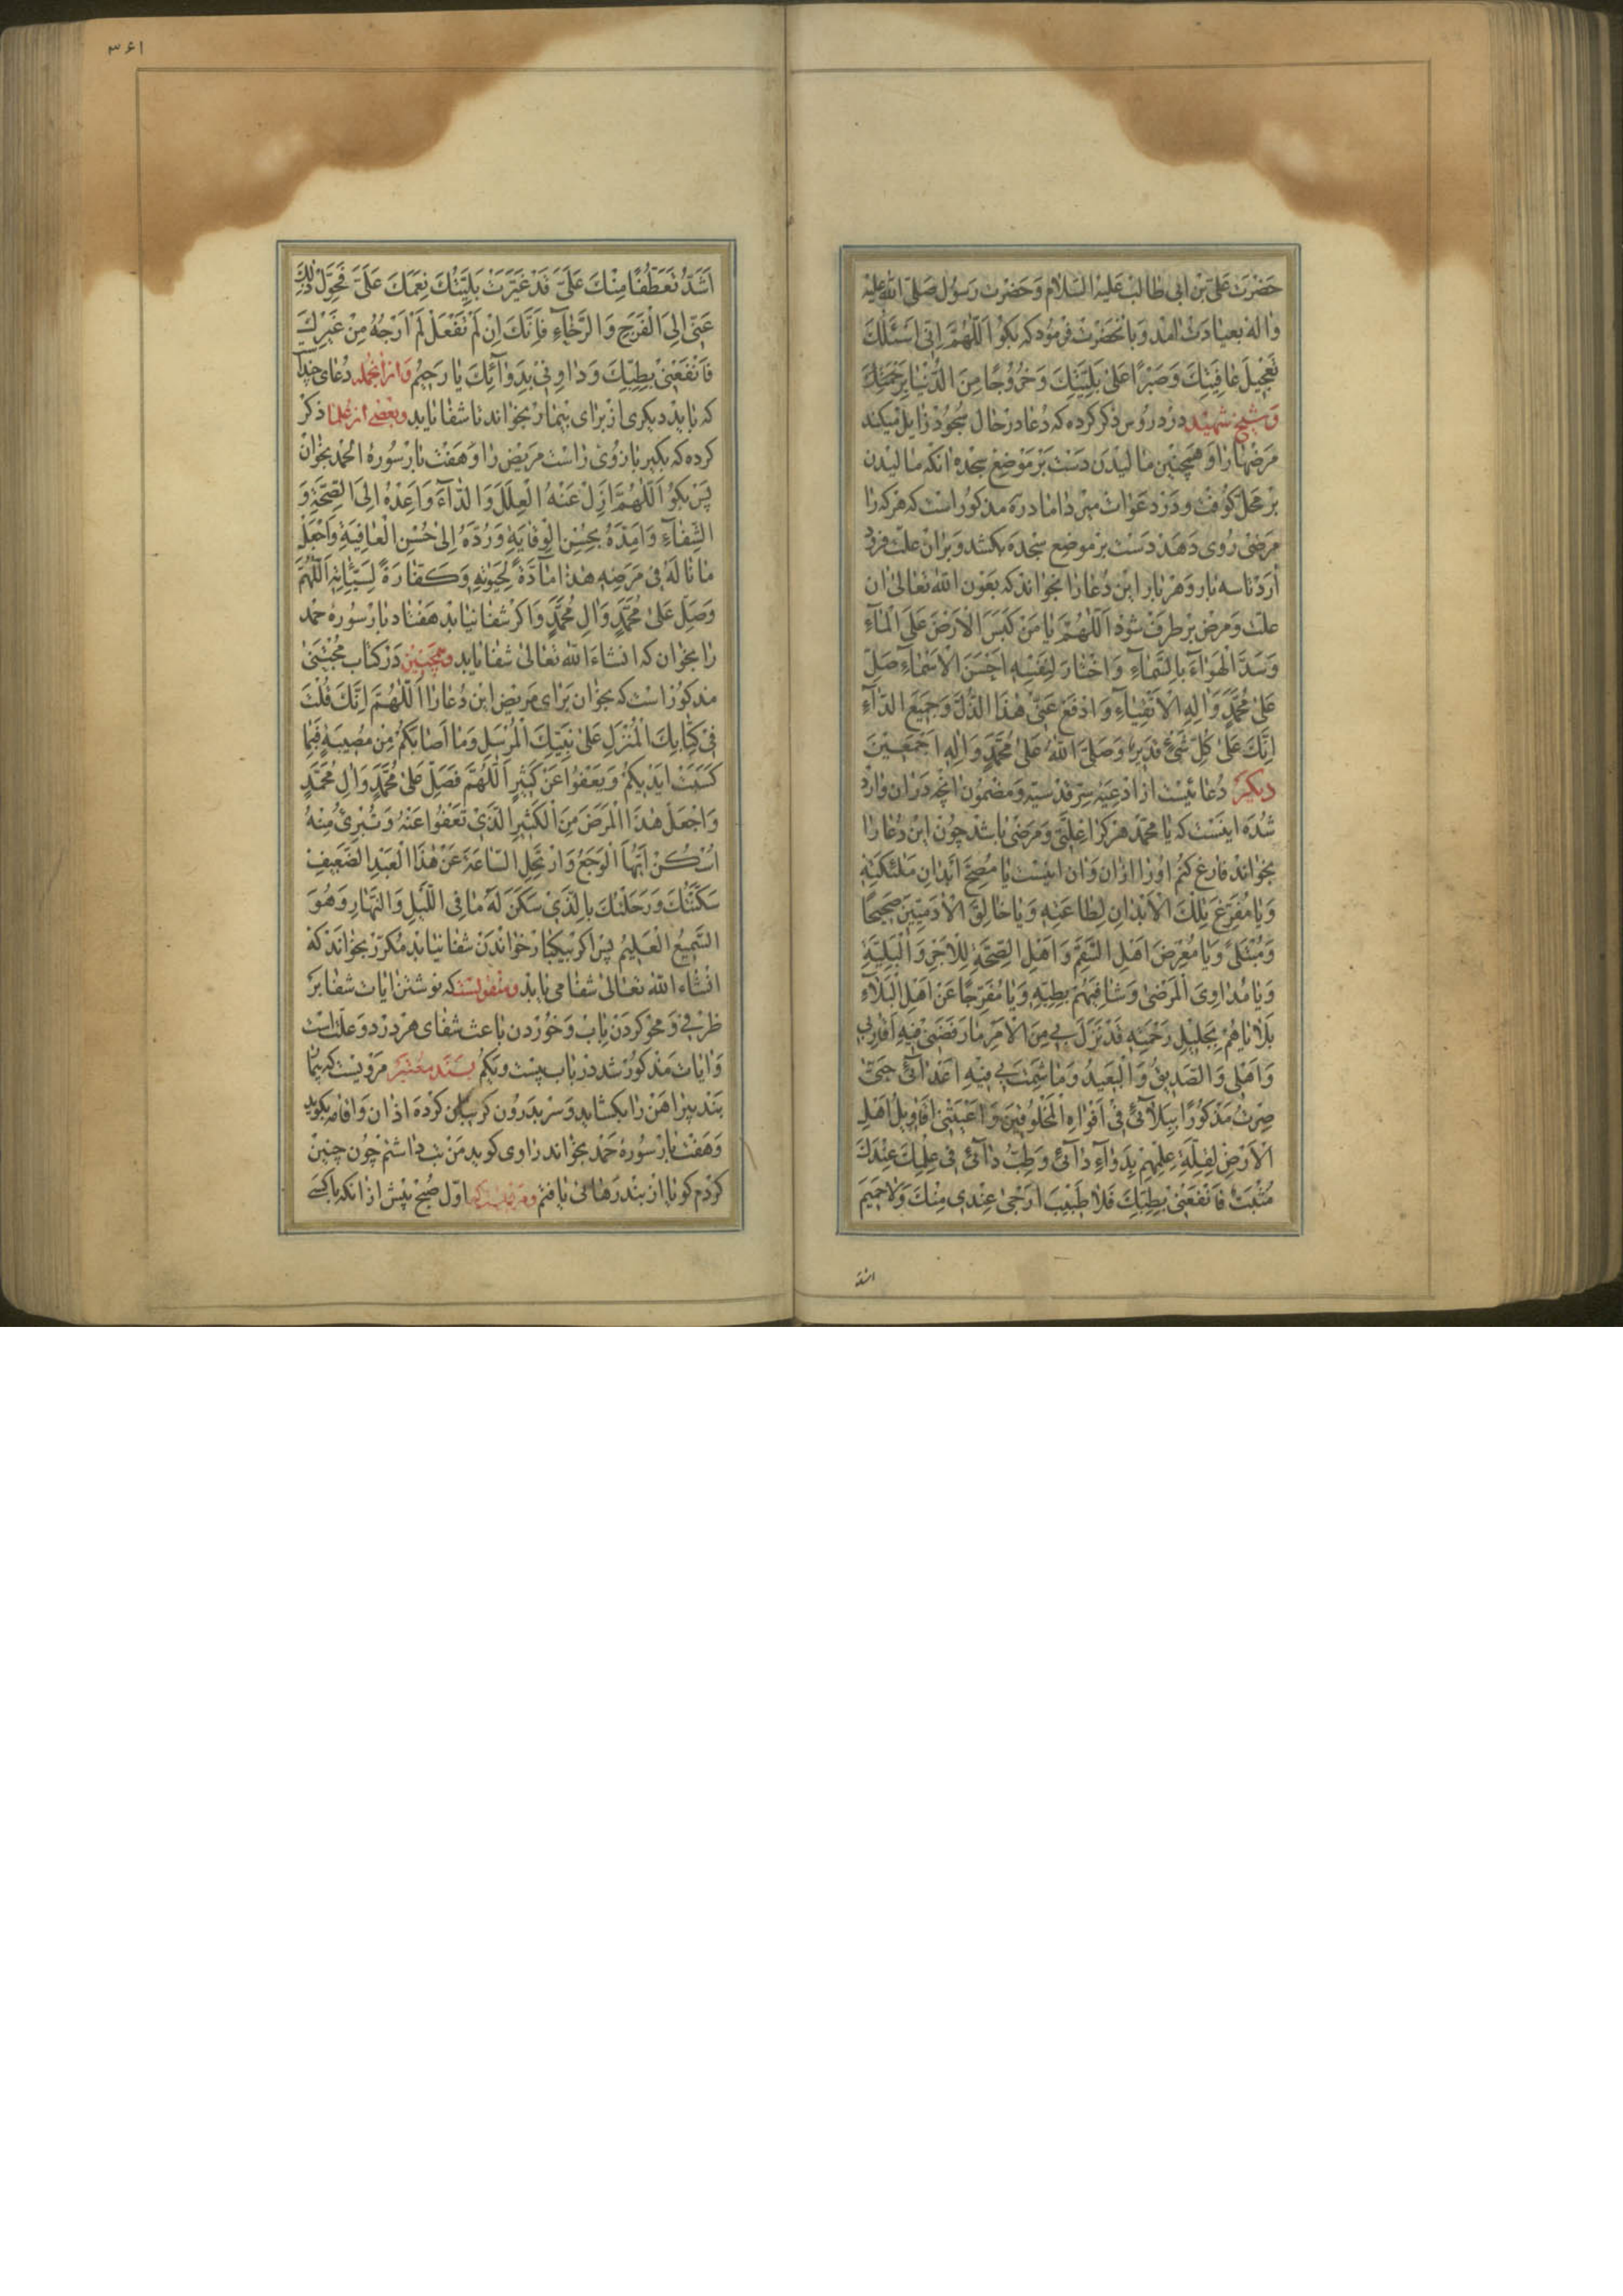 حَضْرَت عَلِىّ بْن اَبى طٰالِبْ عَلَيْهِ السَّلٰام وَ حَضْرَت رَسُول صَلَّى اللّٰه عَلَيْهِ
وَاٰلِهٰ بعيٰادَتْ اٰمَد وَ باٰنحَضْرَتْ فرمُود كه بكو اَللّٰهُمَّ اِنّى اَسْئَلُكَ
تَعْجِيلَ عٰافِيَتِكَ وَ صَبْرًا عَلىٰ بَلِيَّتِكَ وَ خُرُوجًا مِنَ الدُّنْيٰا بِرَحْمَتِكَ
وَ شيخ شَهيْد در درُوس ذكر كرده كه دُعٰا در حٰال سُجُود زٰايل ميكند
مَرَضهٰا رٰا وَ همچنين مٰاليدن دَسْت بَر مَوْضِع سجده اٰنكه مٰاليدن
بر محلّ كوفت و در دعَوٰات مير دٰامٰاد ره مذكور است كه هركه رٰا
مرضى رُوى دَهد دَسْت بر موضع سجده بكشد و بر اٰن علّت فرود
اٰرَد تٰا سه بٰار و هر بٰار اين دُعٰا رٰا بخوٰاند كه بعَون اللّٰه تعٰالىٰ اٰن
علّت و مَرض بر طرف شود اَللّٰهُمَّ يٰا مَنْ كَبَسَ الْاَرْضَ عَلَى الْمٰآءِ
وَ سَدَّ الْهَوٰآءَ بِالسَّمٰآءِ وَ اخْتٰارَ لِنَفْسِهِ اَحْسَنَ الْاَسْمٰآءِ صَلِّ
عَلىٰ مُحَمَّدٍ وَ اٰلِهِ الْاَتْقِيٰآءِ وَ ادْفَعْ عَنّى هٰذَا الذُّلَّ وَ جَمِيعَ الدّٰآءِ
اِنَّكَ عَلىٰ كُلِّ شَىْءٍ قَدِيرٌ وَ صَلَّى اللّٰهُ عَلىٰ مُحَمَّدٍ وَ اٰلِهِ اَجْمَعِينَ
ديكر دُعٰائيست از ادْعِيَهٔ سِرّ قدسيّه وَ مضمُون اٰنچه در اٰن وٰارد
شُده اينَسْت كه يٰا محمّد هركرٰا علّتى وَ مرضى بٰاشد چُون اين دُعٰا رٰا
بخوٰاند فٰارغ كنم اورٰا از اٰن وَ اٰن اينست يٰا مُصِحَّ اَبْدٰانِ مَلٰئِكَتِهِ
وَ يٰا مُفَرِّغَ تِلْكَ الْاَبْدٰانِ لِطٰاعَتِهِ وَ يٰا خٰالِقَ الْاٰدَمِيّينَ صَحيحًا
وَ مُبْتَلىً وَ يٰا مُعَرِّضَ اَهْلِ السَّقَمِ وَ اَهْلِ الصِّحَّةِ لِلْاَجْرِ وَ الْبَلِيَّةِ
وَ يٰا مُدٰاوِىَ الْمَرْضىٰ وَ شٰافِيَهُمْ بِطِبِّهِ وَ يٰا مُفَرِّجًا عَنْ اَهْلِ الْبَلٰآءِ
بَلٰايٰاهُمْ بِجَلِيلِ رَحْمَتِهِ قَدْ نَزَلَ بى مِنَ الْاَمْرِ مٰا رَفَضَنى فِيهِ اَقٰارِبى
وَ اَهْلى وَ الصَّدِيقُ وَ الْبَعِيدُ وَ مٰا شَمِتَ بى فِيهِ اَعْدٰآئى حَتّىٰ
صِرْتُ مَذْكُورًا بِبَلٰآئى فى اَفْوٰاهِ الْمَخْلُوقينَ وَ اَعْيَتْنى اَقٰاوِيلُ اَهْلِ
الْاَرْضِ لِقِلَّةِ عِلْمِهِمْ بِدَوٰآءِ دٰآئى وَ طِبُّ دٰآئى فى عِلْمِكَ عِنْدَكَ
مُثْبَتٌ فَانْفَعْنى بِطِبِّكَ فَلٰا طَبيبَ اَرْجىٰ عِنْدى مِنْكَ وَ لٰا حَميمَ
اشدّ
٣٦١
اَشَدُّ تَعَطُّفًا مِنْكَ عَلَىَّ قَدْ غَيَّرَتْ بَلِيَّتُكَ نِعَمَكَ عَلَىَّ فَحَوِّلْ ذٰلِكَ
عَنّى اِلَى الْفَرَجِ وَ الرَّخٰآءِ فَاِنَّكَ اِنْ لَمْ تَفْعَلْ لَمْ اَرْجُهُ مِنْ غَيْرِكَ
فَانْفَعْنى بِطِبِّكَ وَ دٰاوِنى بِدَوٰآئِكَ يٰا رَحيمُ وَ از اٰنجمله دُعٰاى چند
كه بٰايد ديكرى از برٰاى بيمٰار بخوٰاند تٰا شفٰا يٰابد و بعضے از علمٰا ذكر
كرده كه بكير بٰازُوى رٰاست مَريض رٰا وَ هَفْت بٰار سُورهٔ الحمد بخوٰان
پَس بكو اَللّٰهُمَّ اَزِلْ عَنْهُ الْعِلَلَ وَ الدّٰآءَ وَ اَعِدْهُ اِلَى الصِّحَّةِ وَ
الشِّفٰآءِ وَ اَمِدَّهُ بِحُسْنِ الْوِقٰايَةِ وَ رُدَّهُ اِلىٰ حُسْنِ الْعٰافِيَةِ وَ اجْعَلْ
مٰا نٰالَهُ فى مَرَضِهِ هٰذٰا مٰآدَّةً لِحَيٰوتِهِ وَ كَفّٰارَةً لِسَيِّئٰاتِهِ اَللّٰهُمَّ
وَ صَلِّ عَلىٰ مُحَمَّدٍ وَ اٰلِ مُحَمَّدٍ وَ اكر شفٰا نيٰابد هفتٰاد بٰار سُورهٔ حمد
رٰا بخوٰان كه انشٰاءَ اللّٰه تعٰالىٰ شفٰا يٰابد و همچنين دَر كتٰاب مُجْتَنىٰ
مذكوُر است كه بخوٰان برٰاى مَريض اين دُعٰا رٰا اَللّٰهُمَّ اِنَّكَ قُلْتَ
فى كِتٰابِكَ الْمُنْزَلِ عَلىٰ نَبِيِّكَ الْمُرْسَلِ وَ مٰا اَصٰابَكُمْ مِنْ مُصيبَةٍ فَبِمٰا
كَسَبَتْ اَيْديكُمْ وَ يَعْفُوا عَنْ كَثيرٍ اَللّٰهُمَّ فَصَلِّ عَلىٰ مُحَمَّدٍ وَ اٰلِ مُحَمَّدٍ
وَ اجْعَلْ هٰذَا الْمَرَضَ مِنَ الْكَثيرِ الَّذى تَعْفُوا عَنْهُ وَ تُبْرِئُ مِنْهُ
اُسْكُنْ اَيُّهَا الْوَجَعُ وَ ارْتَحِلِ السّٰاعَةَ عَنْ هٰذَا الْعَبْدِ الضَّعيفِ
سَكَّنْتُكَ وَ رَحَلْتُكَ بِالَّذى سَكَنَ لَهُ مٰا فِى اللَّيْلِ وَ النَّهٰارِ وَ هُوَ
السَّميعُ الْعَليمُ پس اكر بيكبٰار خوٰاندن شفٰا نيٰابد مُكرّر بخوٰاند كه
انشٰاء اللّٰه تعٰالىٰ شفٰا مى يٰابد و منقولست كه نوشتن اٰيٰات شفٰا بر
ظرفى وَ محو كردن بٰاب وَ خوُردن بٰاعث شفٰاى هر درد و علّت است
وَ اٰيٰات مَذكوُر شد در بٰاب بيست و يكم بسَند معتَبر مَرويست كه بيمٰار
بند پيرٰاهَن رٰا بكشٰايد وَ سر بدَرُون كريبٰان كرده اذٰان وَ اقٰامه بكويد
وَ هَفت بٰار سُورهٔ حَمْد بخوٰاند رٰاوى كويد مَنْ تب دٰاشتم چُون چنين
كردم كويٰا از بند رهٰائى يٰافتم اوّل صُبْح پيش از اٰنكه بٰا كسے